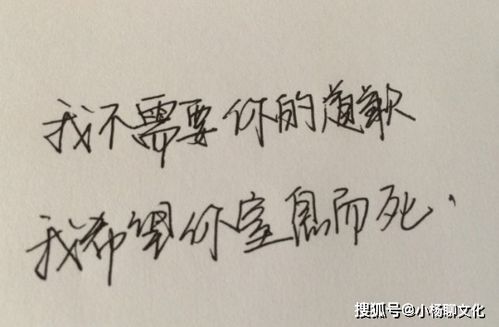 我不需要你的道歉
我希望你窒息而死.
搜狐号@小杨聊文化